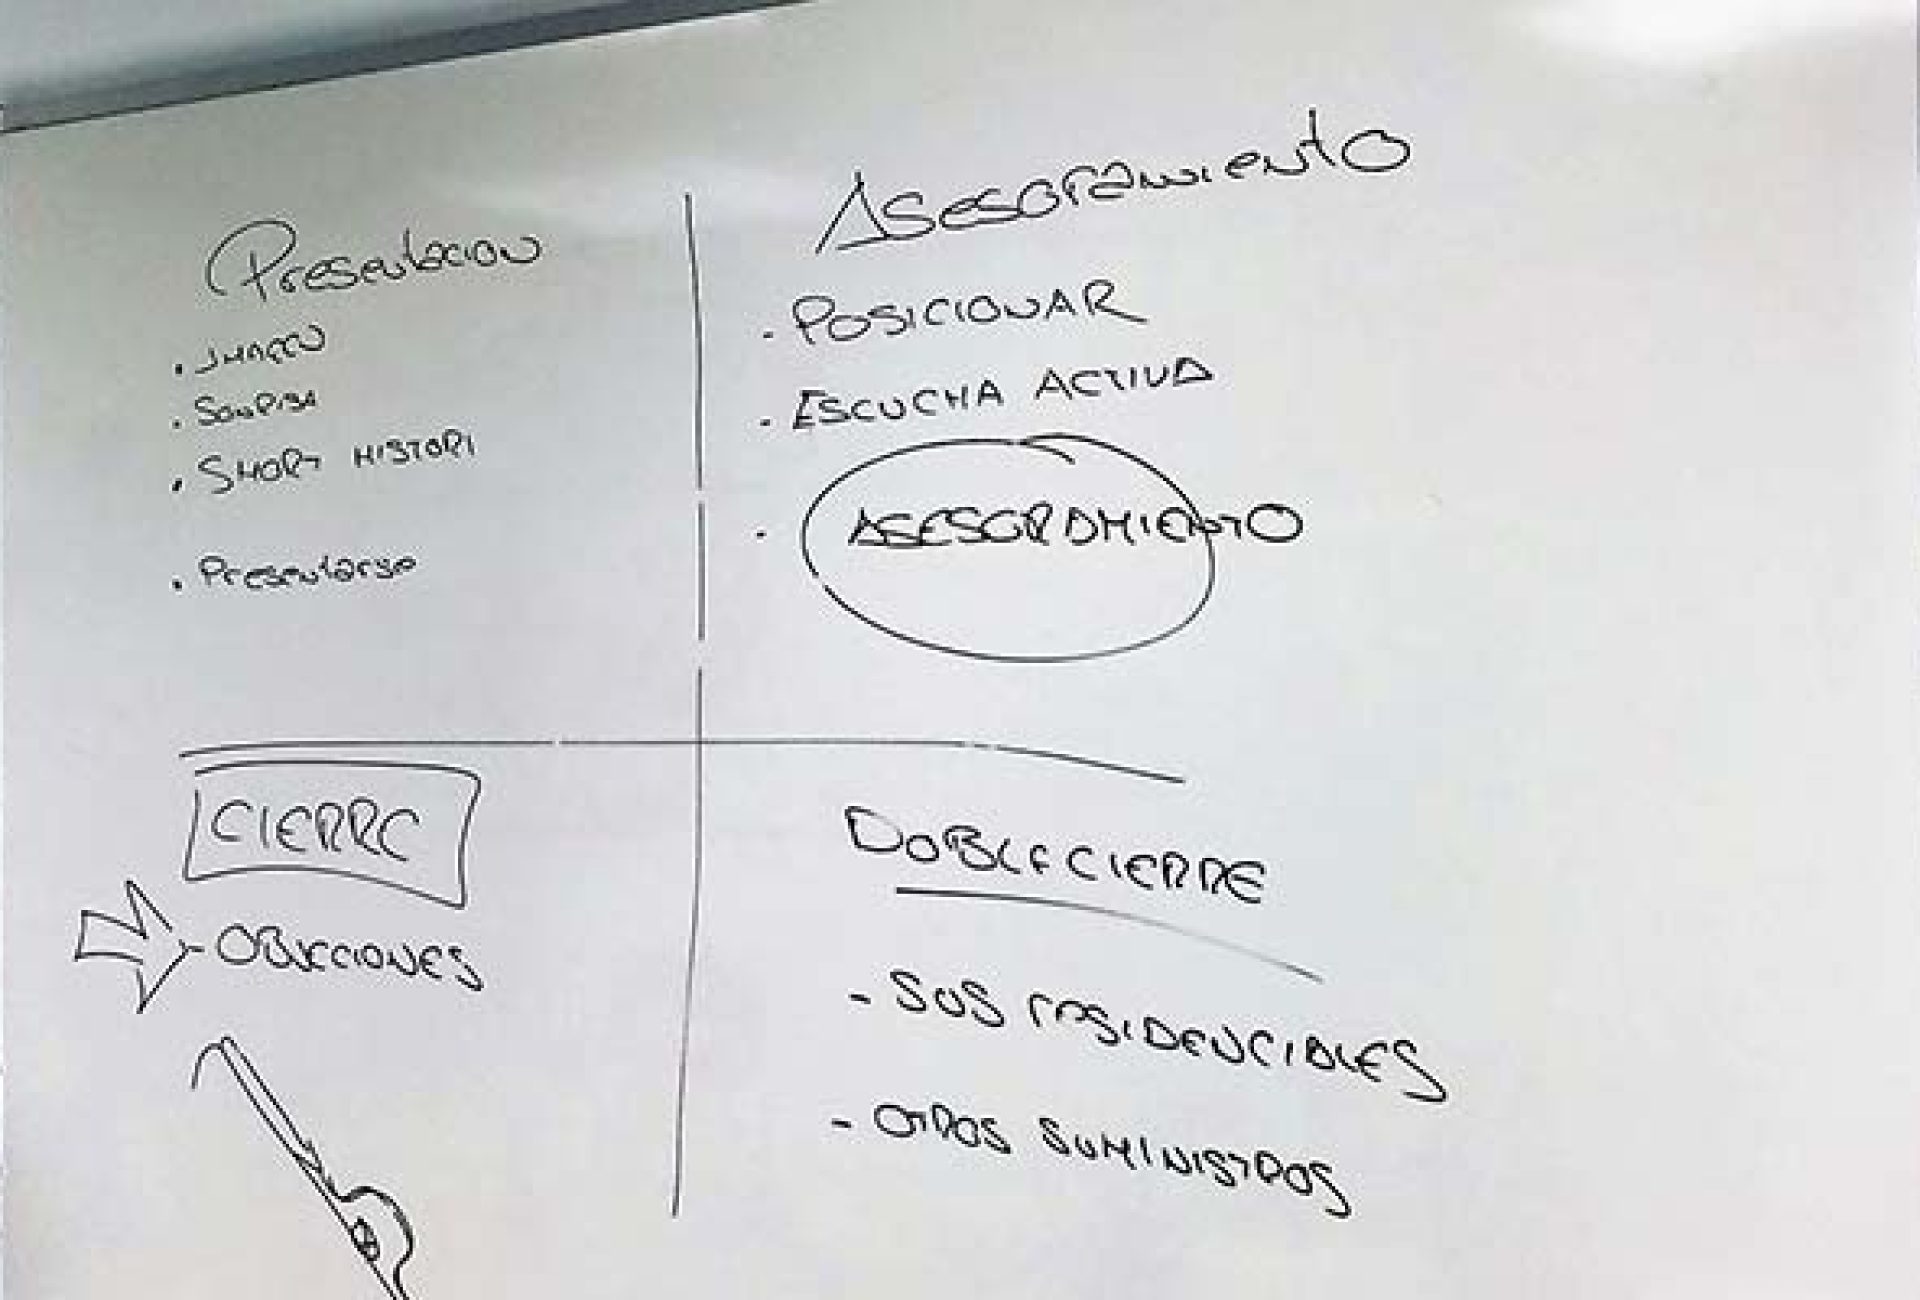 Presentacion
. IMAGEN
. SONRISA
. SHORT HISTORI
. Presentarse
Asesoramiento
. POSICIONAR
. ESCUCHA ACTIVA
. ASESORAMIENTO
CIERRE
- OBJECCIONES
DOBLE CIERRE
- SUS RESIDENCIALES
- OTROS SUMINISTROS